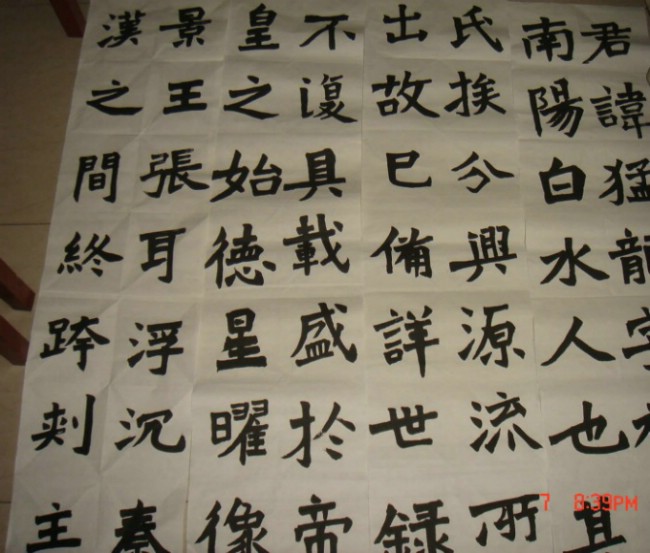 君諱猛龍字
南陽白水人也其
氏族分興源流所
出故已俻詳世録
不復具載盛於帝
皇之始德星曜像
景王張耳浮沉秦
漢之間終跨刾主
7 8:39PM